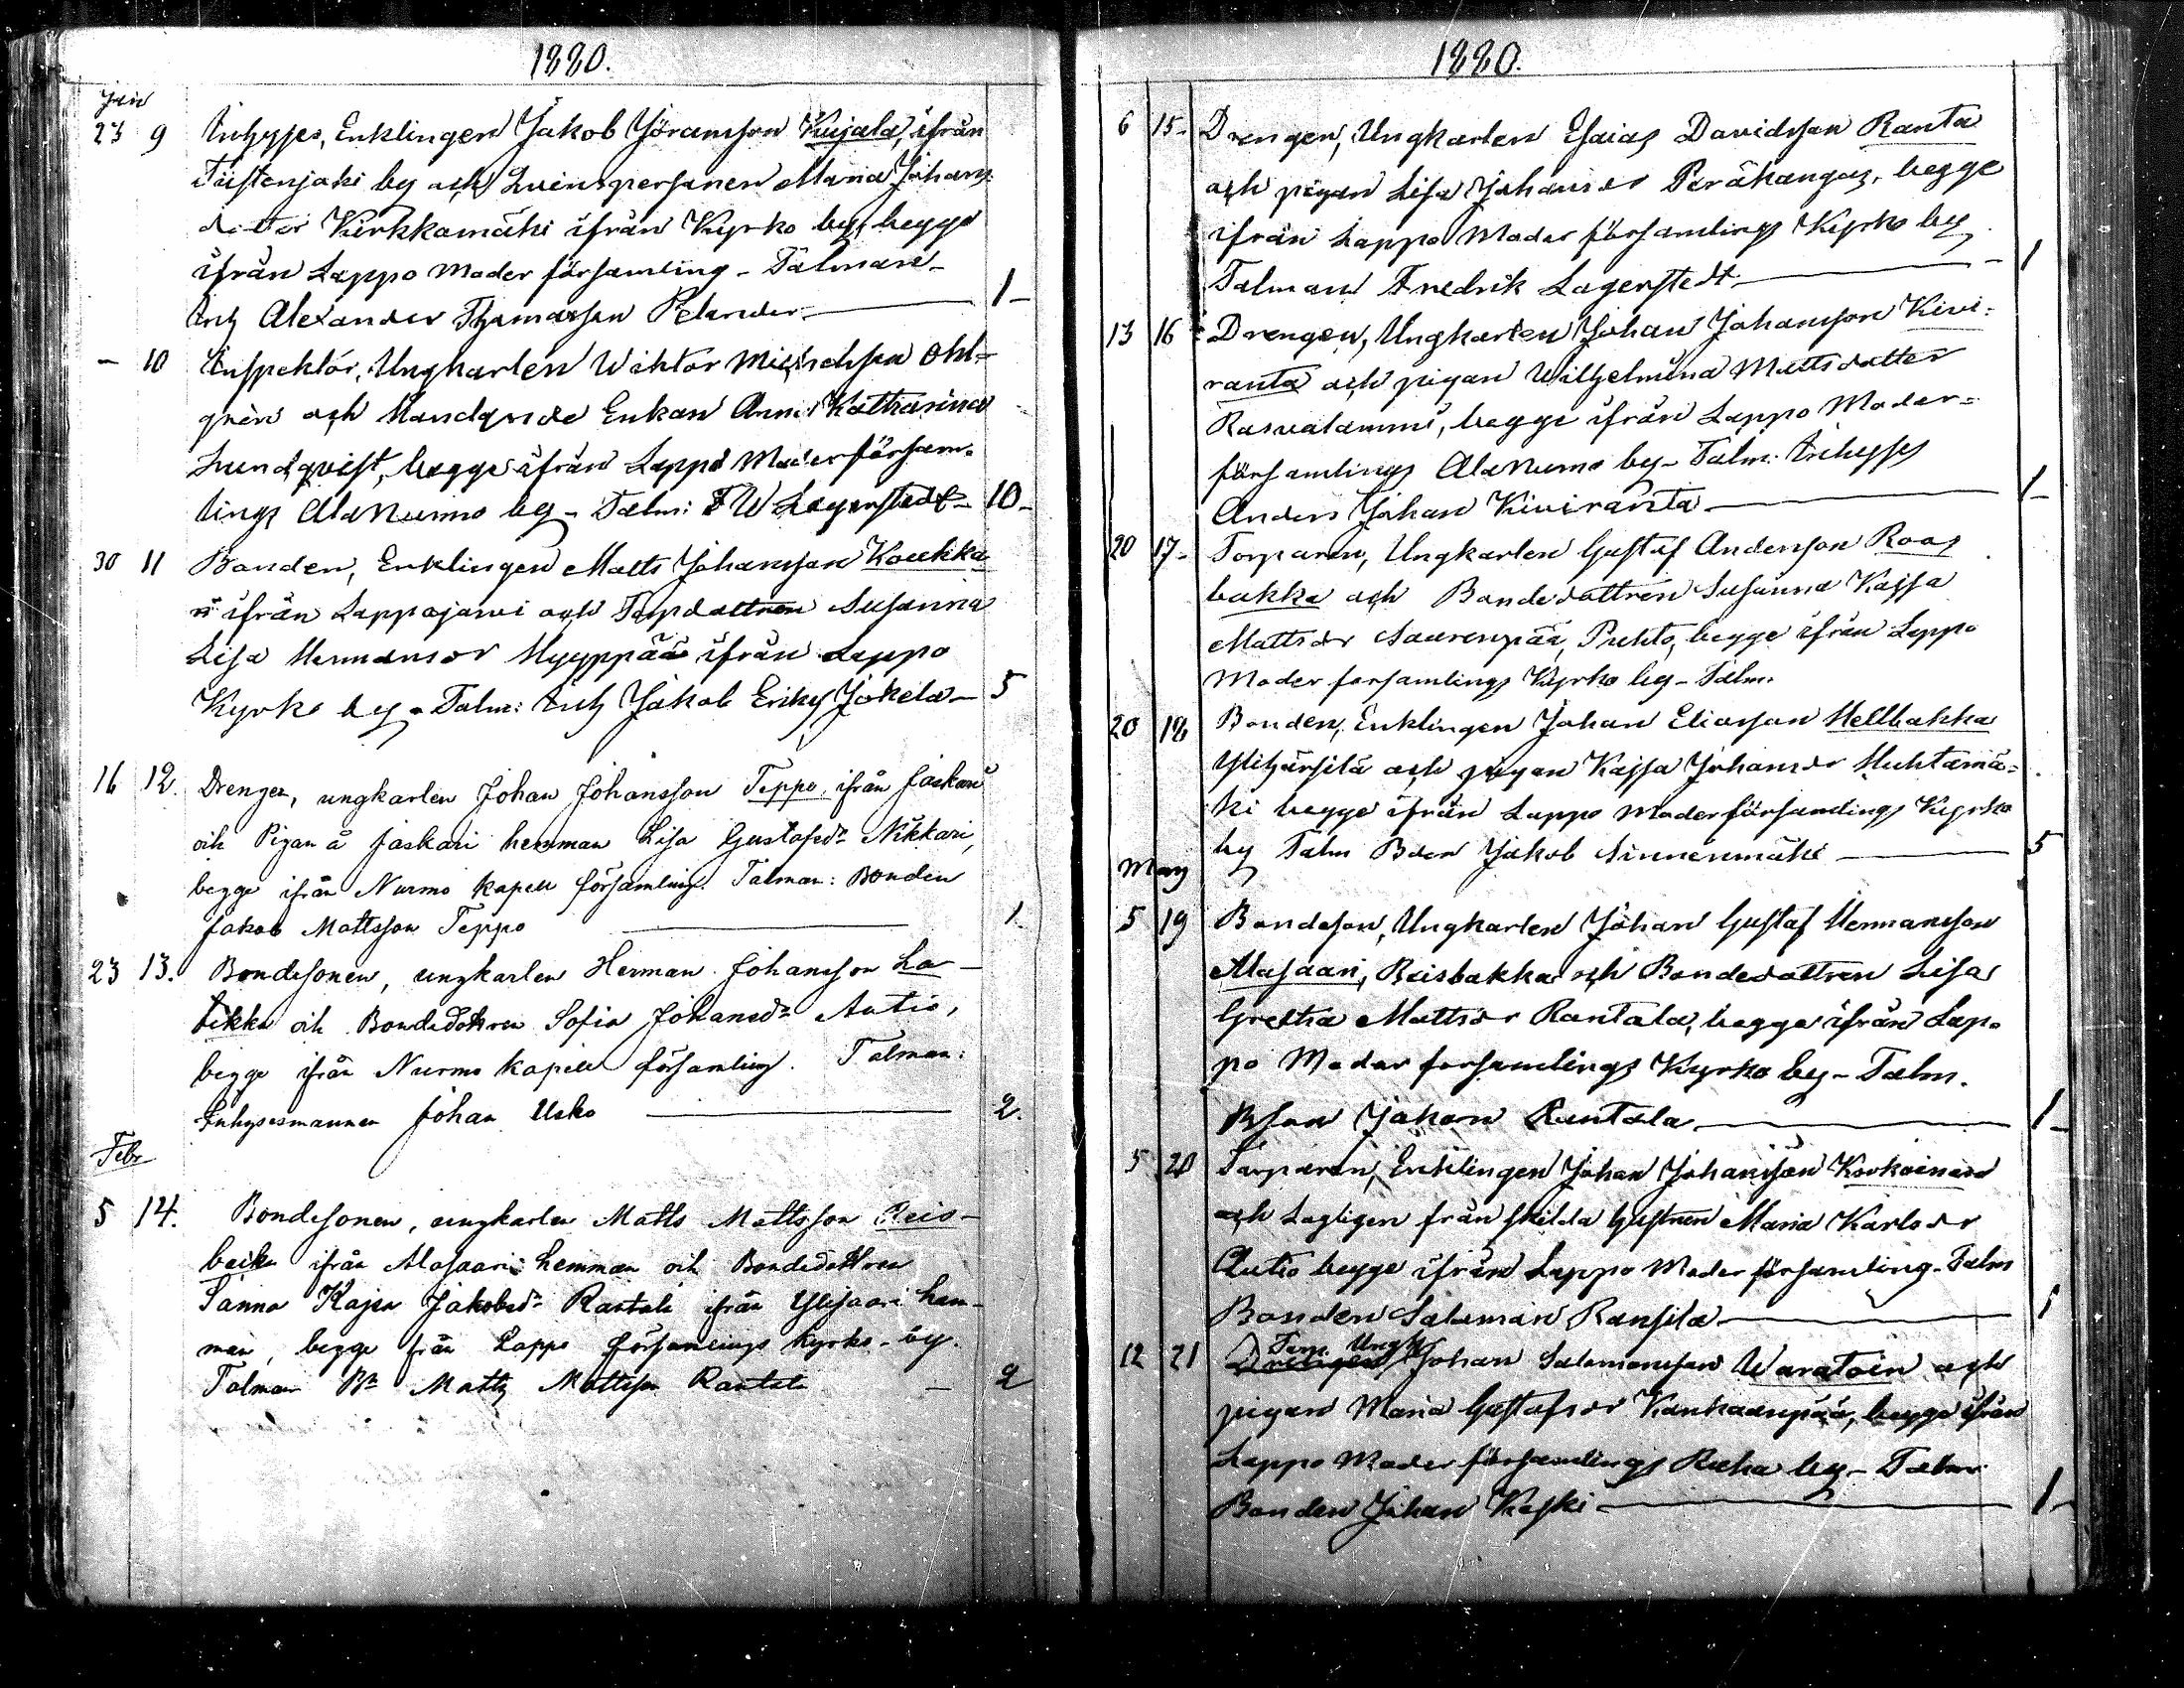 1880.
Jan
23 9 Inhyses, Enklingen Jakob Jöransson Kujala, ifrån
Tiistenjoki by och Qvinspersonen Maria Johans
dotter Kirkkomäki ifrån Kyrko by, begge
ifrån Lappo Moder församling - Talman -
Inh Alexander Thomasson Pelander 1 -
- 10 Inspektor, Ungkarlen Wiktor Michelsson Ohl=
gren och Handlande Enkan Anna Katharina
Lundqvist, begge ifrån Lappo Moderförsam=
lings AlaNurmo by - Talm: F W Lagerstedt - 10 -
30 11 Bonden, Enklingen Matts Johansson Koukka
ri ifrån Lappajärvi och Torpdottren Susanna
Lisa Hermansdr Hyyppää ifrån Lappo
Kyrko by - Talm: Inh Jakob Eriks Jokela - 5
16 12. Drengen, ungkarlen Johan Johansson Teppo, ifrån Jaskari
och Pigan å Jaskari hemman Lisa Gustafsdr Nikkari,
begge ifrån Nurmo Kapell församling. Talman: Bonden
Jakob Mattsson Teppo 1.
23 13. Bondesonen, ungkarlen Herman Johansson La-
tikka och Bondedottren Sofia Johansdr Autio,
begge ifrån Nurmo Kapell församling. Talman:
Inhysesmannen Johan Usko 2.
Febr
5 14. Bondesonen, ungkarlen Matts Mattsson Reis-
backa ifrån Alasaari hemman och Bondedottren
Sanna Kajsa Jakobsdr Rantala ifrån Ylisaari hem-
man, begge från Lappo församlings Kyrko-by.
Talman Bn Matts Mattsson Rantala - 2
1880.
6 15- Drengen, Ungkarlen Esaias Davidsson Ranta
och pigan Lisa Johansdr Peräkangas, begge
ifrån Lappo Moder församlings Kyrko by
Talman Fredrik Lagerstedt - 1
13 16 Drengen, Ungkarlen Johan Johansson Kivi=
ranta och pigan Wilhelmina Mattsdotter
Rasvalammi, begge ifrån Lappo Moder=
församlings AlaNurmo by - Talm: Inhyses
Anders Johan Kiviranta 1 -
20 17- Torparen, Ungkarlen Gustaf Andersson Roos
bakka och Bondedottren Susanna Kajsa
Mattsdr Saarenpää, Puhto, begge ifrån Lappo
Moder församlings Kyrko by - Talm.
20 18 Bonden, Enklingen Johan Eliasson Hellbakka
Ylihärsilä och pigan Kajsa Johansdr Huhtamä=
ki begge ifrån Lappo Moderförsamlings Kyrko
by Talm Bden Jakob Sinnenmäki 5
May
5 19 Bondeson, Ungkarlen Johan Gustaf Hermansson
Alasaari, Reisbakka och Bondedottren Lisa
Gretha Mattsdr Rantala, begge ifrån Lap=
po Moder församlings Kyrko by - Talm.
Bson Johan Rantala 1 -
5 20 Torparen, Enklingen Johan Johansson Korkoinen
och Lagligen från skilda hustrun Maria Karlsdr
Autio begge ifrån Lappo Moder församling - Talm
Bonden Salomon Ransila 1
Torp. Ungk
12 21 Drengen Johan Salomonsson Waratoin och
pigan Maria Gustafsdr Kankaanpää, begge ifrån
Lappo Moder församlings Ruha by - Talm
Bonden Johan Keski 1 -